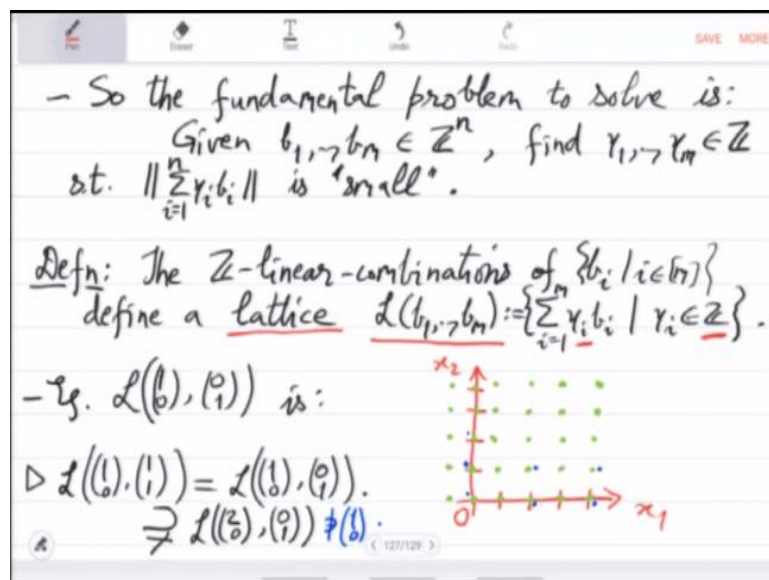 Pen Eraser Text Undo Redo SAVE MORE
- So the fundamental problem to solve is:
Given b₁,⇁bₘ ∈ ℤⁿ, find γ₁,⇁γₘ ∈ ℤ
s.t. ‖∑ᵢ₌₁ⁿ γᵢbᵢ‖ is "small".
Defn: The ℤ-linear-combinations of {bᵢ | i∈[m]}
define a lattice ℒ(b₁,⇁bₘ) := {∑ᵢ₌₁ᵐ γᵢbᵢ | γᵢ∈ℤ}.
- Eg. ℒ((1 0), (0 1)) is:
x₂
▷ ℒ((1 0), (1 1)) = ℒ((1 0), (0 1)).
⊋ ℒ((2 0), (0 1)) ∌ (1 0).
0 x₁
< 127/129 >